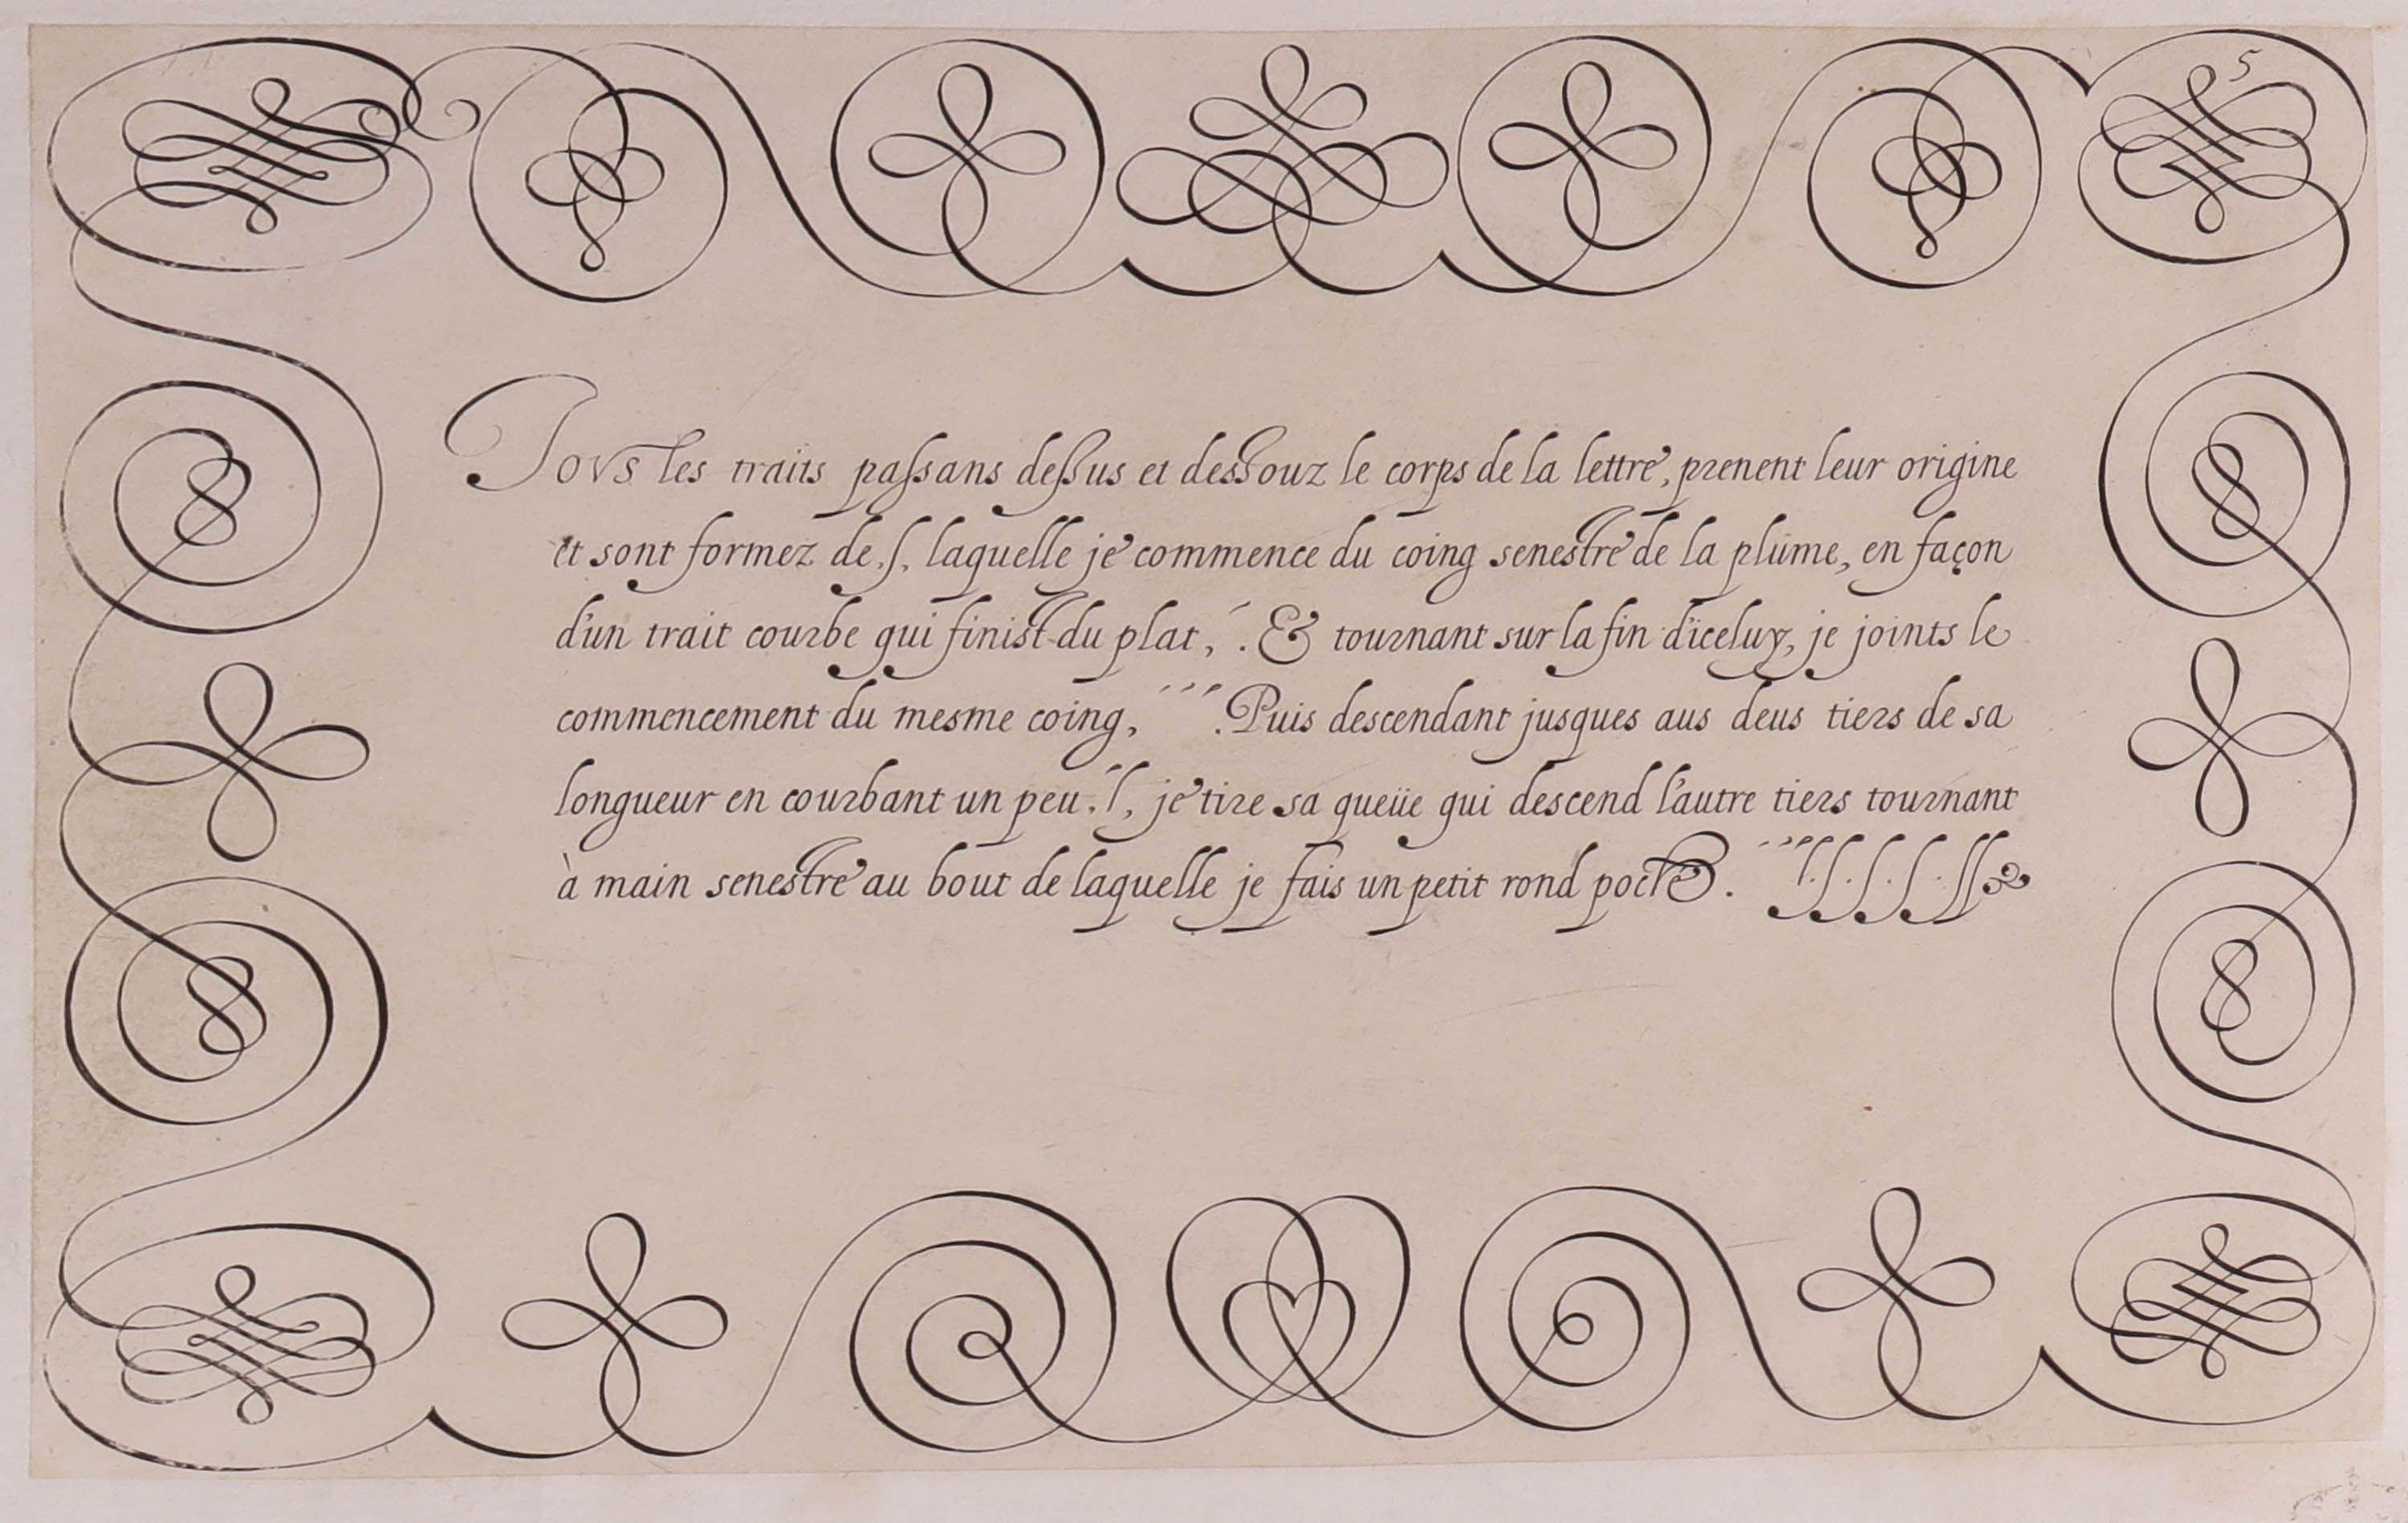 5
Tovs les traits passans dessus et dessouz le corps de la lettre, prenent leur origine
et sont formez de .ſ. laquelle je commence du coing senestre de la plume, en façon
d'un trait courbe qui finist du plat, ´. & tournant sur la fin d'iceluy, je joints le
commencement du mesme coing, ´´´. Puis descendant jusques aus deus tiers de sa
longueur en courbant un peu .ſ, je tire sa queüe qui descend l'autre tiers tournant
à main senestre au bout de laquelle je fais un petit rond poché. ´´´ſ.ſ.ſ.ſ.ſſ